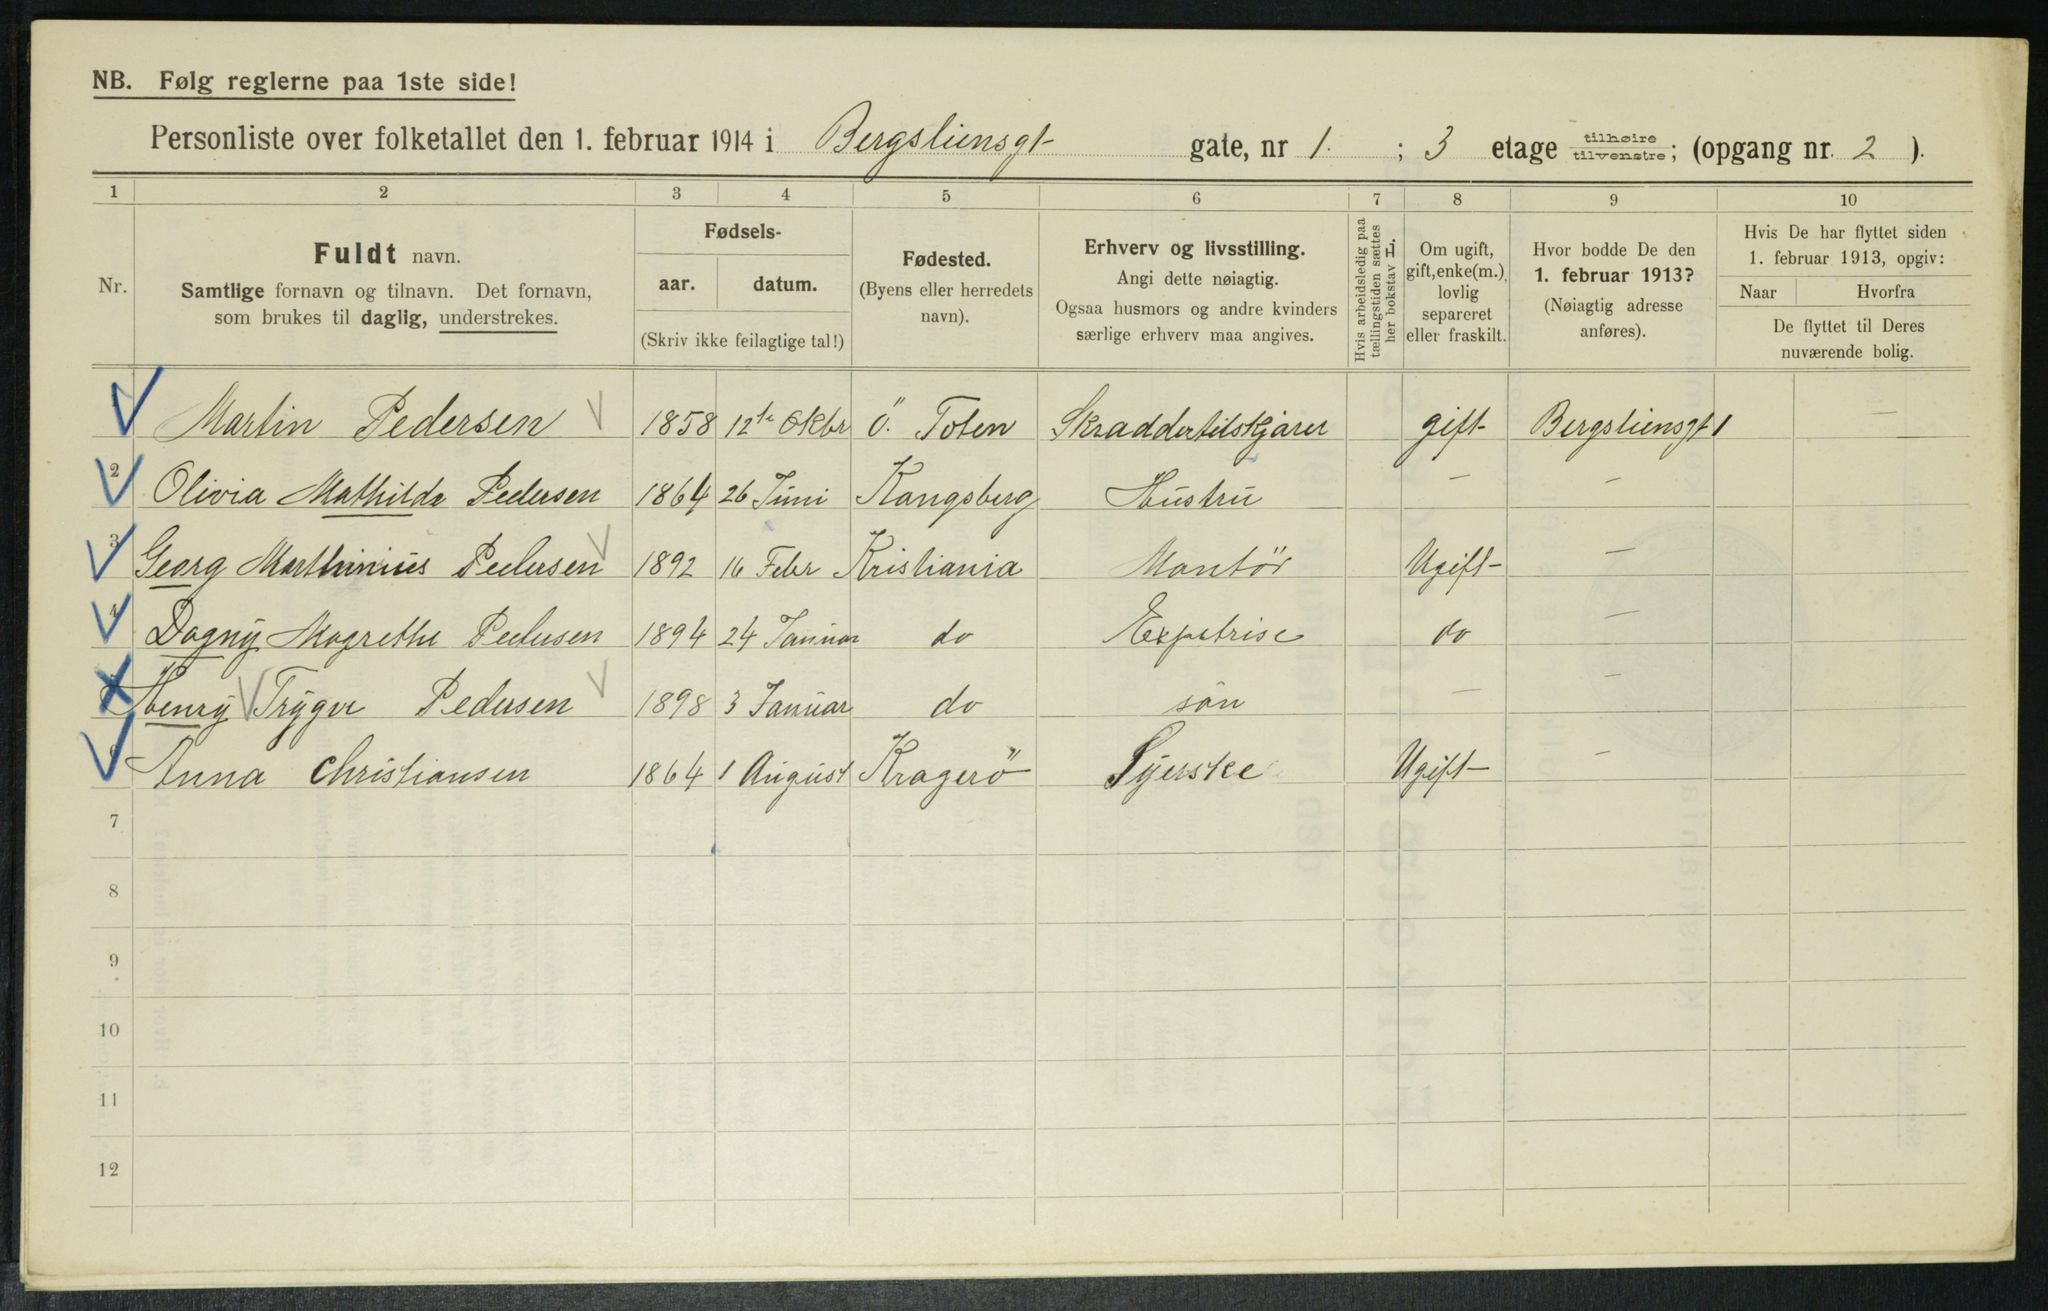 NB. Følg reglerne paa 1ste side!
Personliste over folketallet den 1. februar 1914 i Bergsliensgt gate, nr 1. ; 3 etage tilhøire tilvenstre; (opgang nr. 2 ).
1 2 3 4 5 6 7 8 9 10
Nr.
Fuldt navn.
Samtlige fornavn og tilnavn. Det fornavn,
som brukes til daglig, understrekes.
Fødsels-
aar. datum.
(Skriv ikke feilagtige tal!)
Fødested.
(Byens eller herredets
navn).
Erhverv og livsstilling.
Angi dette nøiagtig.
Ogsaa husmors og andre kvinders
særlige erhverv maa angives.
Hvis arbeidsledig paa
tællingstiden sættes
her bokstav L.
Om ugift,
gift, enke(m.),
lovlig
separeret
eller fraskilt.
Hvor bodde De den
1. februar 1913?
(Nøiagtig adresse
anføres).
Hvis De har flyttet siden
1. februar 1913, opgiv:
Naar Hvorfra
De flyttet til Deres
nuværende bolig.
Martin Pedersen 1858 12te Oktbr Ö. Toten Skräddertilskjärer gift Bergsliensgt 1 —
2 Olivia Mathilde Pedersen 1864 26 Juni Kongsberg Hustru — —
3 Georg Marthinius Pedersen 1892 16 Febr Kristiania Montör Ugift —
4 Dagny Magrethe Pedersen 1894 24 Januar do Expetrise do —
5 Henry Trygve Pedersen 1898 3 Januar do sön — —
6 Anna Christiansen 1864 1 August Kragerö Syerske Ugift —
7
8
9
10
11
12